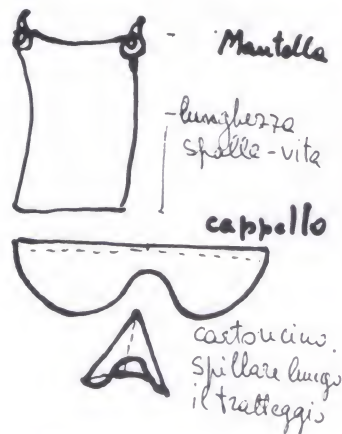 Mantella
lunghezza
spalle-vita
cappello
cartoncino.
spillare lungo
il tratteggio